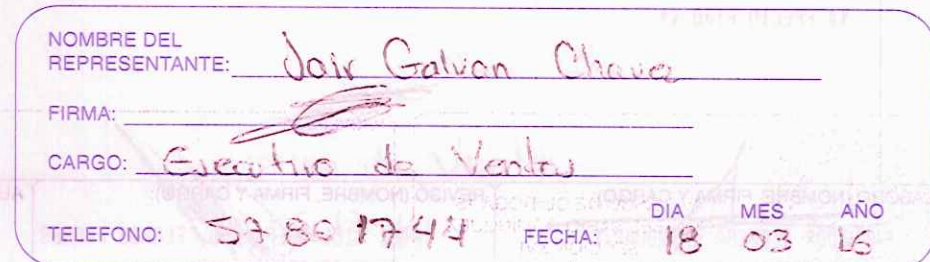 NOMBRE DEL
REPRESENTANTE: Jair Galvan Chavez
FIRMA:
CARGO: Ejecutivo de Ventas
DIA MES AÑO
TELEFONO: 57801744 FECHA: 18 03 16